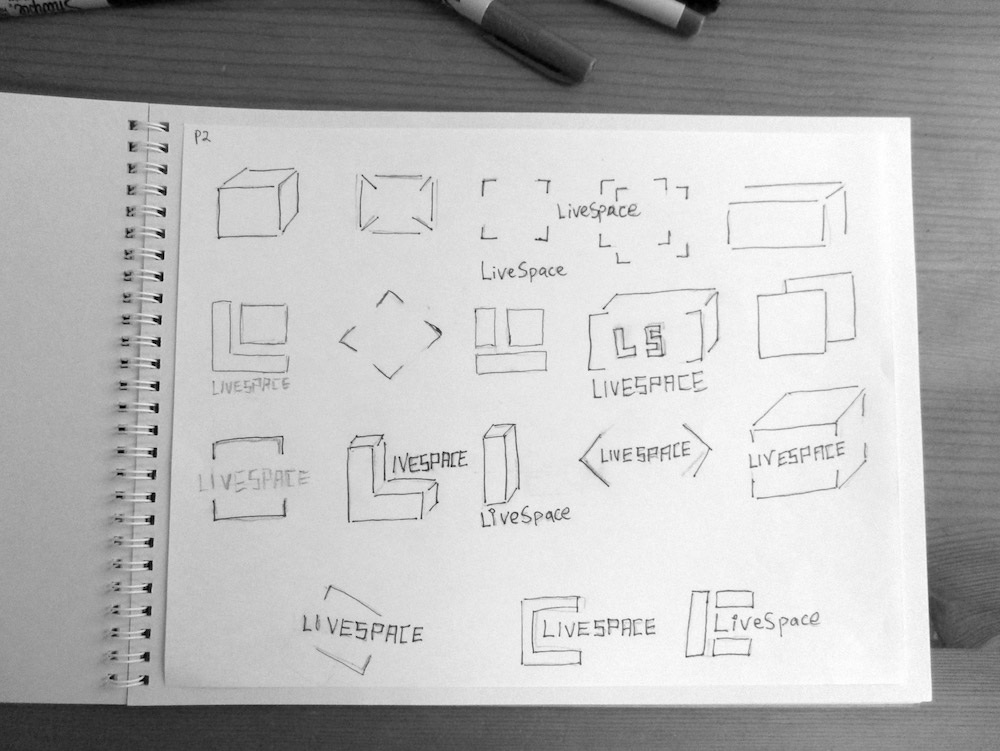 P2
LiveSpace
LiveSpace
LIVESPACE
LS
LIVESPACE
LIVESPACE
LIVESPACE
LiveSpace
LIVESPACE
LIVESPACE
LIVESPACE
LIVESPACE
LiveSpace